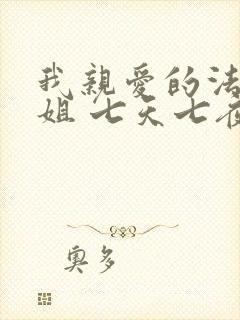 我親愛的法
姐 七天七夜
奧多